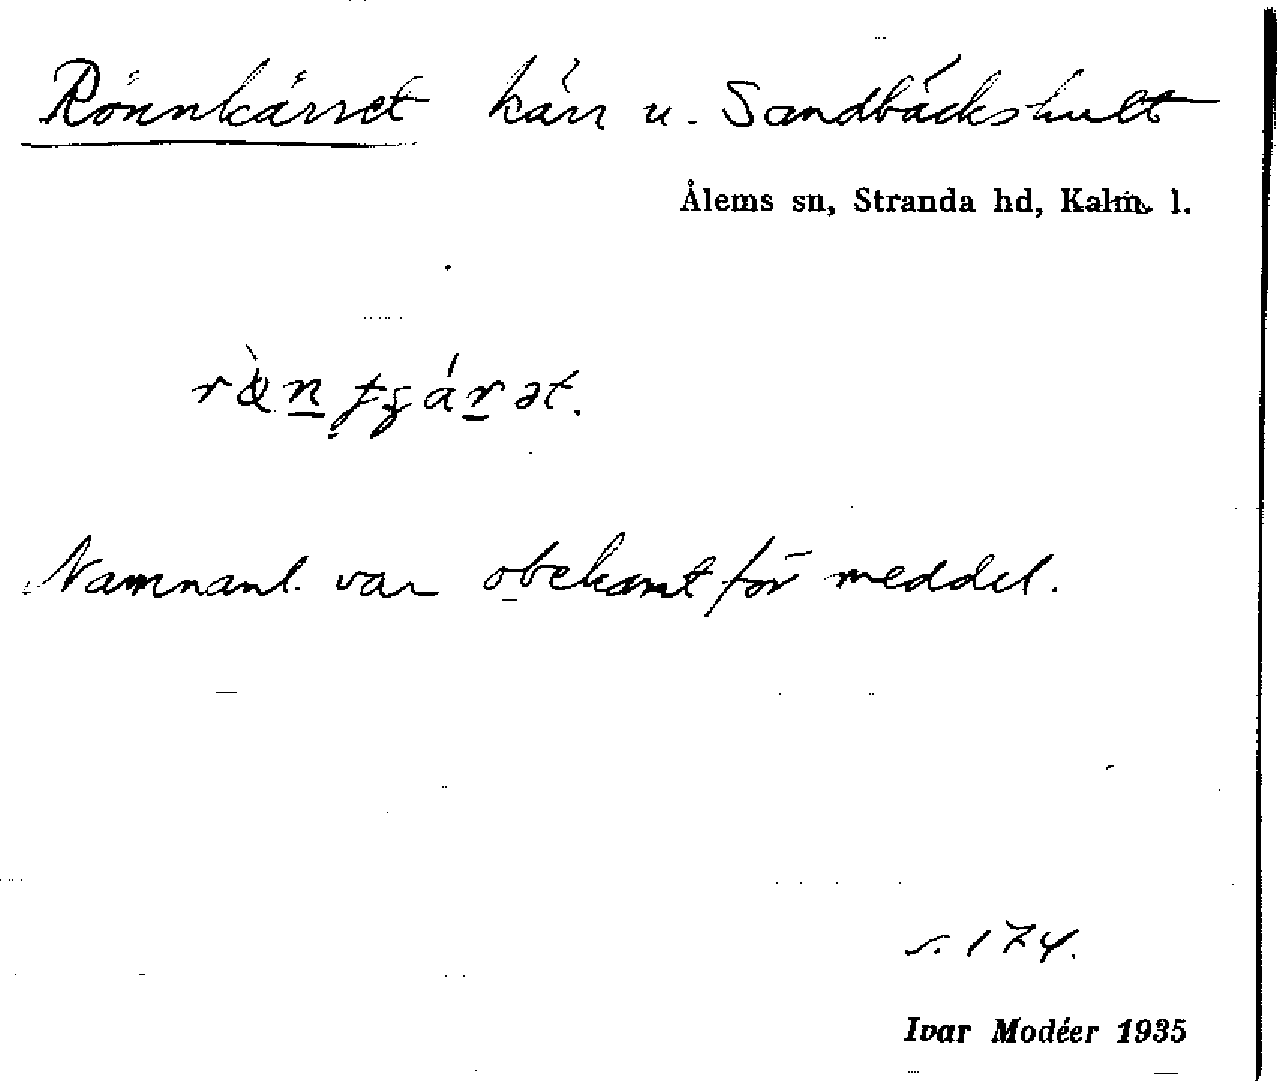 Rönnkärret kärr u. Sandbäckshult
Ålems sn, Stranda hd, Kalm. l.
Namnanl. var obekant för meddel.
s. 174.
Ivar Modéer 1935